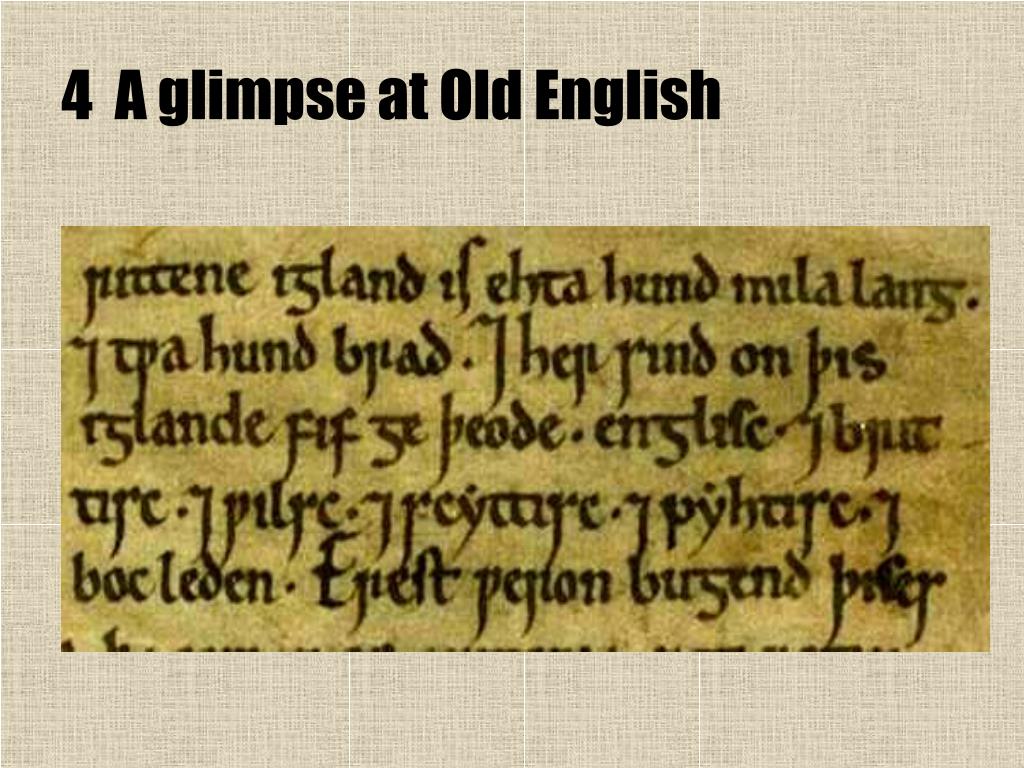 4 A glimpse at Old English
rittene igland iſ ehta hund mila lang.
⁊ tƿa hund brad. ⁊ her sind on þis
iglande fif ge þeode. engliſc. ⁊ brit
tisc. ⁊ ƿilsc. ⁊ scyttisc. ⁊ pyhtisc. ⁊
boc leden. Ereſt ƿeron bugend þiſes